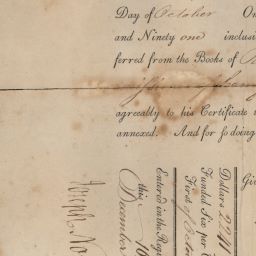 Day of October On
and Ninety one inclusi
ferred from the Books of
agreeably to his Certificate
annexed. And for so doing
Dollars 2241
Funded Six per C
First of Octo
Entered in the Reg
this 16
December
Joseph No
Giv